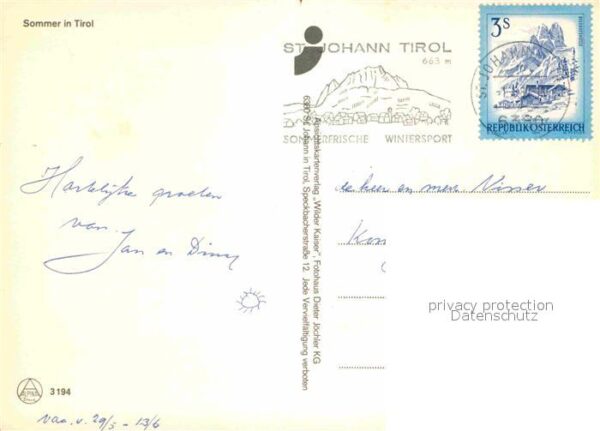 Sommer in Tirol
ST. JOHANN TIROL
663 m
SOMMERFRISCHE WINTERSPORT
3 S
REPUBLIK ÖSTERREICH
ST. JOHANN
6380
Hartelijke groeten
van
Jan en Dinny
de heer en mevr. Visser
Kon
Ansichtskartenverlag „Wilder Kaiser", Fotohaus Dieter Jöchler KG
6380 St. Johann in Tirol, Speckbacherstraße 12. Jede Vervielfältigung verboten
privacy protection
Datenschutz
3194
van. v. 29/5 - 13/6